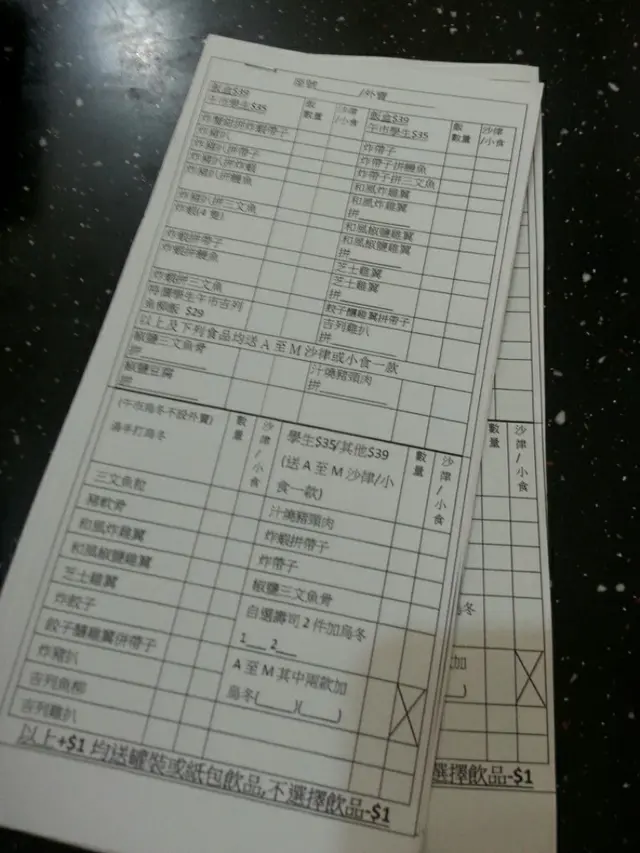 座號______/外賣______
飯盒$39
午市學生$35
飯
數量
沙律
/小食
飯盒$39
午市學生$35
飯
數量
沙律
/小食
炸豬扒
炸豬扒拼帶子
炸豬扒拼炸蝦
炸豬扒拼鰻魚
炸豬扒拼三文魚
炸蝦(4隻)
炸蝦拼帶子
炸蝦拼鰻魚
炸蝦拼三文魚
特價學生午市吉列
魚柳飯 $29
炸帶子
炸帶子拼鰻魚
炸帶子拼三文魚
和風炸雞翼
和風炸雞翼
拼______
和風椒鹽雞翼
和風椒鹽雞翼
拼______
芝士雞翼
芝士雞翼
拼______
餃子釀雞翼拼帶子
吉列雞扒
拼______
以上及下列食品均送 A 至 M 沙律或小食一款
椒鹽三文魚骨
拼______
椒鹽豆腐
拼______
汁燒豬頸肉
拼______
(午市烏冬不設外賣)
湯半打烏冬
數量
沙律/小食
學生$35/其他$39
(送 A 至 M 沙律/小
食一款)
數量
沙律/小食
三文魚
豬軟骨
和風炸雞翼
和風椒鹽雞翼
芝士雞翼
炸餃子
餃子釀雞翼拼帶子
炸豬扒
吉列魚柳
吉列雞扒
汁燒豬頸肉
炸蝦拼帶子
炸帶子
椒鹽三文魚骨
自選壽司 2 件加烏冬
1___ 2___
A 至 M 其中兩款加
烏冬(____)(____)
以上+$1 均送罐裝或紙包飲品,不選擇飲品-$1
數量
沙律/小食
冬
加
)
選擇飲品-$1